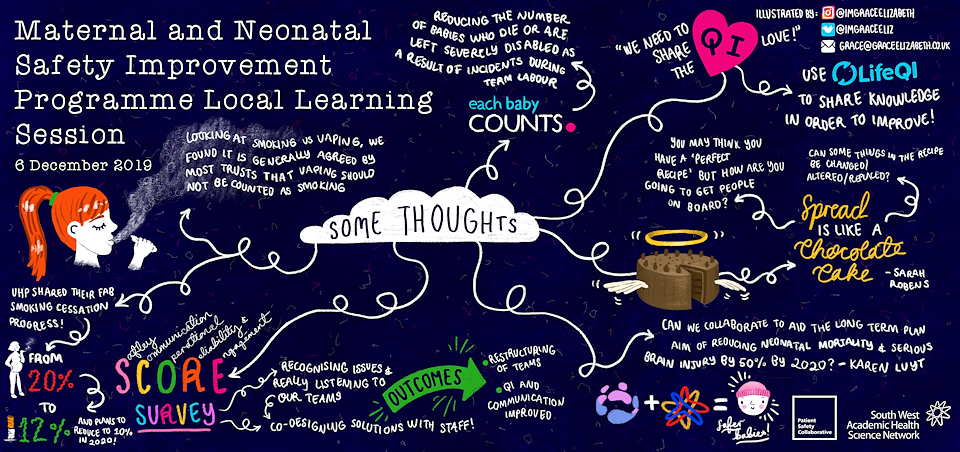 Maternal and Neonatal
Safety Improvement
Programme Local Learning
Session
6 December 2019
LOOKING AT SMOKING VS VAPING, WE
FOUND IT IS GENERALLY AGREED BY
MOST TRUSTS THAT VAPING SHOULD
NOT BE COUNTED AS SMOKING
REDUCING THE NUMBER
OF BABIES WHO DIE OR ARE
LEFT SEVERELY DISABLED AS
A RESULT OF INCIDENTS DURING
TERM LABOUR
each baby
COUNTS.
"WE NEED TO
SHARE
THE
QI
LOVE!"
ILLUSTRATED BY:
@IMGRACEELIZABETH
@IMGRACEELIZ
GRACE@GRACEELIZABETH.CO.UK
USE LifeQI
TO SHARE KNOWLEDGE
IN ORDER TO IMPROVE!
YOU MAY THINK YOU
HAVE A 'PERFECT
RECIPE' BUT HOW ARE YOU
GOING TO GET PEOPLE
ON BOARD?
CAN SOME THINGS IN THE RECIPE
BE CHANGED/
ALTERED/REFINED?
Spread
IS LIKE A
Chocolate
Cake
- SARAH
ROBENS
SOME THOUGHTS
UHP SHARED THEIR FAB
SMOKING CESSATION
PROGRESS!
FROM
20%
TO
12%
AND PLANS TO
REDUCE TO 10%
IN 2020!
safety
communication
operational
reliability &
engagement
SCORE
SURVEY
RECOGNISING ISSUES &
REALLY LISTENING TO
OUR TEAMS
CO-DESIGNING SOLUTIONS WITH STAFF!
OUTCOMES
• RESTRUCTURING
OF TEAMS
• QI AND
COMMUNICATION
IMPROVED
CAN WE COLLABORATE TO AID THE LONG TERM PLAN
AIM OF REDUCING NEONATAL MORTALITY & SERIOUS
BRAIN INJURY BY 50% BY 2020? - KAREN LUYT
+
=
Safer
babies!
Patient
Safety
Collaborative
South West
Academic Health
Science Network